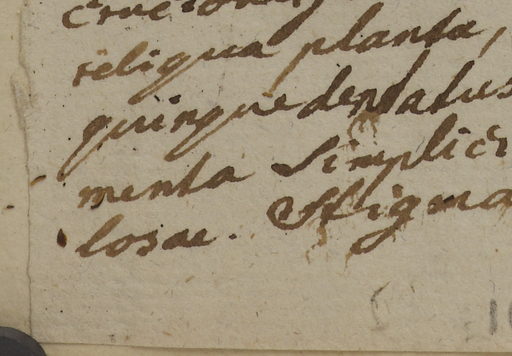 reliqua planta,
quinquedentatus
menta simplici
losae. Stigma